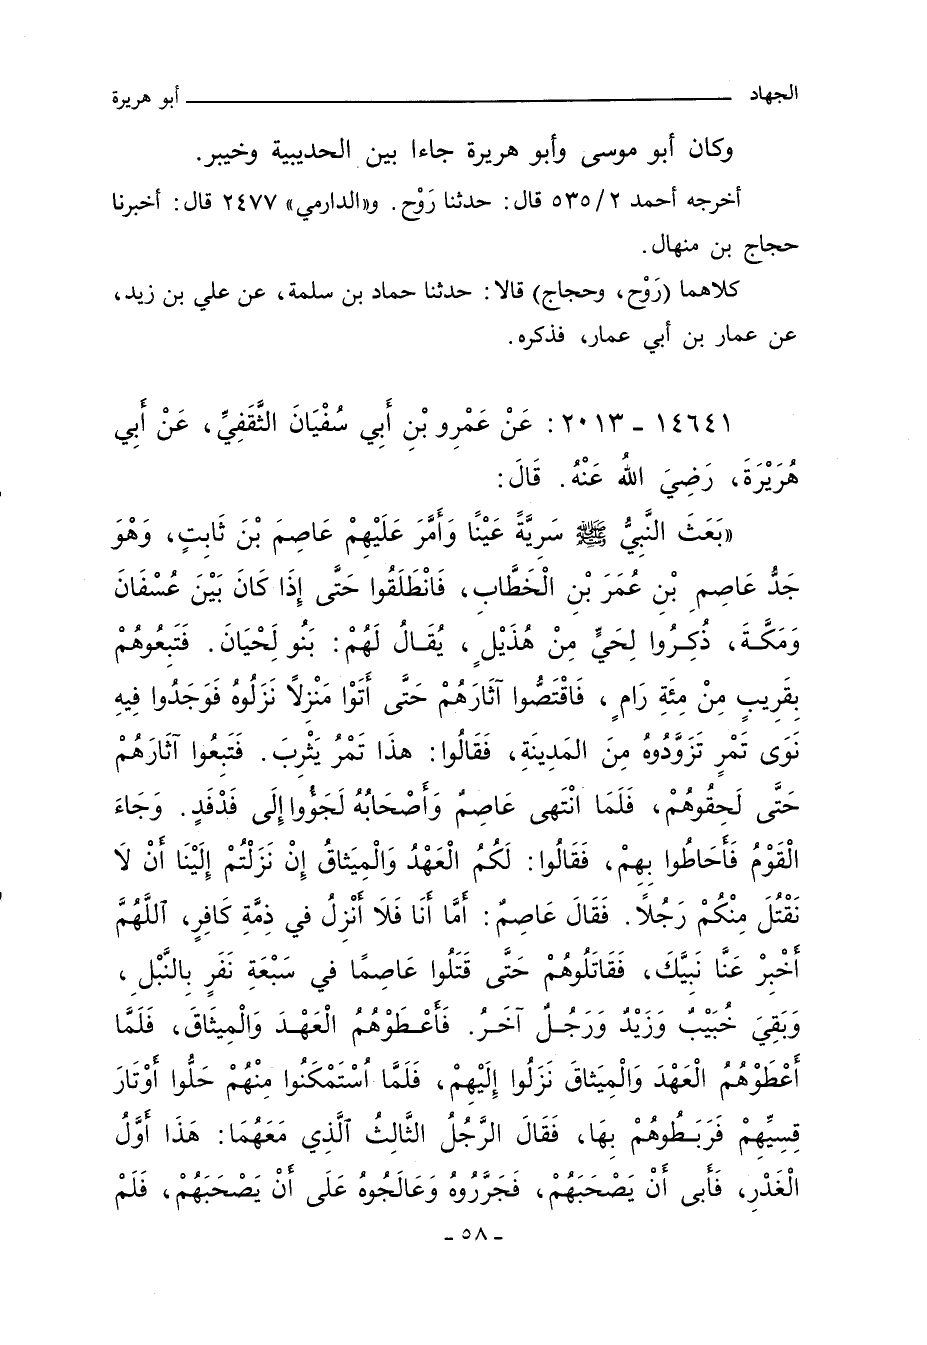 الجهاد ــــــــــ أبو هريرة
وكان أبو موسى وأبو هريرة جاءا بين الحديبية وخيبر.
أخرجه أحمد ٢/ ٥٣٥ قال: حدثنا رَوْح. و«الدارمي» ٢٤٧٧ قال: أخبرنا
حجاج بن منهال.
كلاهما (رَوْح، وحجاج) قالا: حدثنا حماد بن سلمة، عن علي بن زيد،
عن عمار بن أبي عمار، فذكره.
١٤٦٤١ ـ ٢٠١٣: عَنْ عَمْرِو بْنِ أَبي سُفْيَانَ الثَّقَفِيِّ، عَنْ أَبِي
هُرَيْرَةَ، رَضِيَ اللهُ عَنْهُ. قَالَ:
«بَعَثَ النَّبِيُّ ﷺ سَرِيَّةً عَيْنًا وَأَمَّرَ عَلَيْهِمْ عَاصِمَ بْنَ ثَابِتٍ، وَهُوَ
جَدُّ عَاصِمِ بْنِ عُمَرَ بْنِ الْخَطَّابِ، فَانْطَلَقُوا حَتَّى إِذَا كَانَ بَيْنَ عُسْفَانَ
وَمَكَّـةَ، ذُكِـرُوا لِحَيٍّ مِنْ هُذَيْلٍ، يُقَـالُ لَهُمْ: بَنُو لَحْيَانَ. فَتَبِعُوهُمْ
بِقَرِيبٍ مِنْ مِئَةِ رَامٍ، فَاقْتَصُّوا آثَارَهُمْ حَتَّى أَتَوْا مَنْزِلاً نَزَلُوهُ فَوَجَدُوا فِيهِ
نَوَى تَمْرٍ تَزَوَّدُوهُ مِنَ المَدِينَةِ، فَقَالُوا: هذَا تَمْرُ يَثْرِبَ. فَتَبِعُوا آثَارَهُمْ
حَتَّى لَحِقُوهُمْ، فَلَمَا انْتَهى عَاصِمٌ وَأَصْحَابُهُ لَجَؤُوا إِلَى فَدْفَدٍ. وَجَاءَ
الْقَوْمُ فَأَحَاطُوا بِهِمْ، فَقَالُوا: لَكُمُ الْعَهْدُ وَالْمِيَثاقُ إِنْ نَزَلْتُمْ إِلَيْنَا أَنْ لَا
نَقْتُلَ مِنْكُمْ رَجُلاً. فَقَالَ عَاصِمٌ: أَمَّا أَنَا فَلَا أَنْزِلُ في ذِمَّةِ كَافِرٍ، اَللَّهُمَّ
أَخْبِرْ عَنَّا نَبِيَّكَ، فَقَاتَلُوهُمْ حَتَّى قَتَلُوا عَاصِمًا في سَبْعَةِ نَفَرٍ بِالنَّبْلِ،
وَبَقِيَ خُبَيْبٌ وَزَيْدٌ وَرَجُـلٌ آخَـرُ. فَأَعْـطَوْهُمُ الْعَهْـدَ وَالْمِيثَاقَ، فَلَمَّا
أَعْطَوْهُمُ الْعَهْدَ وَالْمِيَثاقَ نَزَلُوا إِلَيْهِمْ، فَلَمَّا اُسْتَمْكَنُوا مِنْهُمْ حَلُّوا أَوْتَارَ
قِسِيِّهِمْ فَرَبَـطُوهُمْ بِهَا، فَقَالَ الرَّجُلُ الثَّالِثُ اَلَّذِي مَعَهُمَا: هَذَا أَوَّلُ
الْغَدْرِ، فَأَبى أَنْ يَصْحَبَهُمْ، فَجَرَّرُوهُ وَعَالَجُوهُ عَلَى أَنْ يَصْحَبَهُمْ، فَلَمْ
ـ ٥٨ ـ